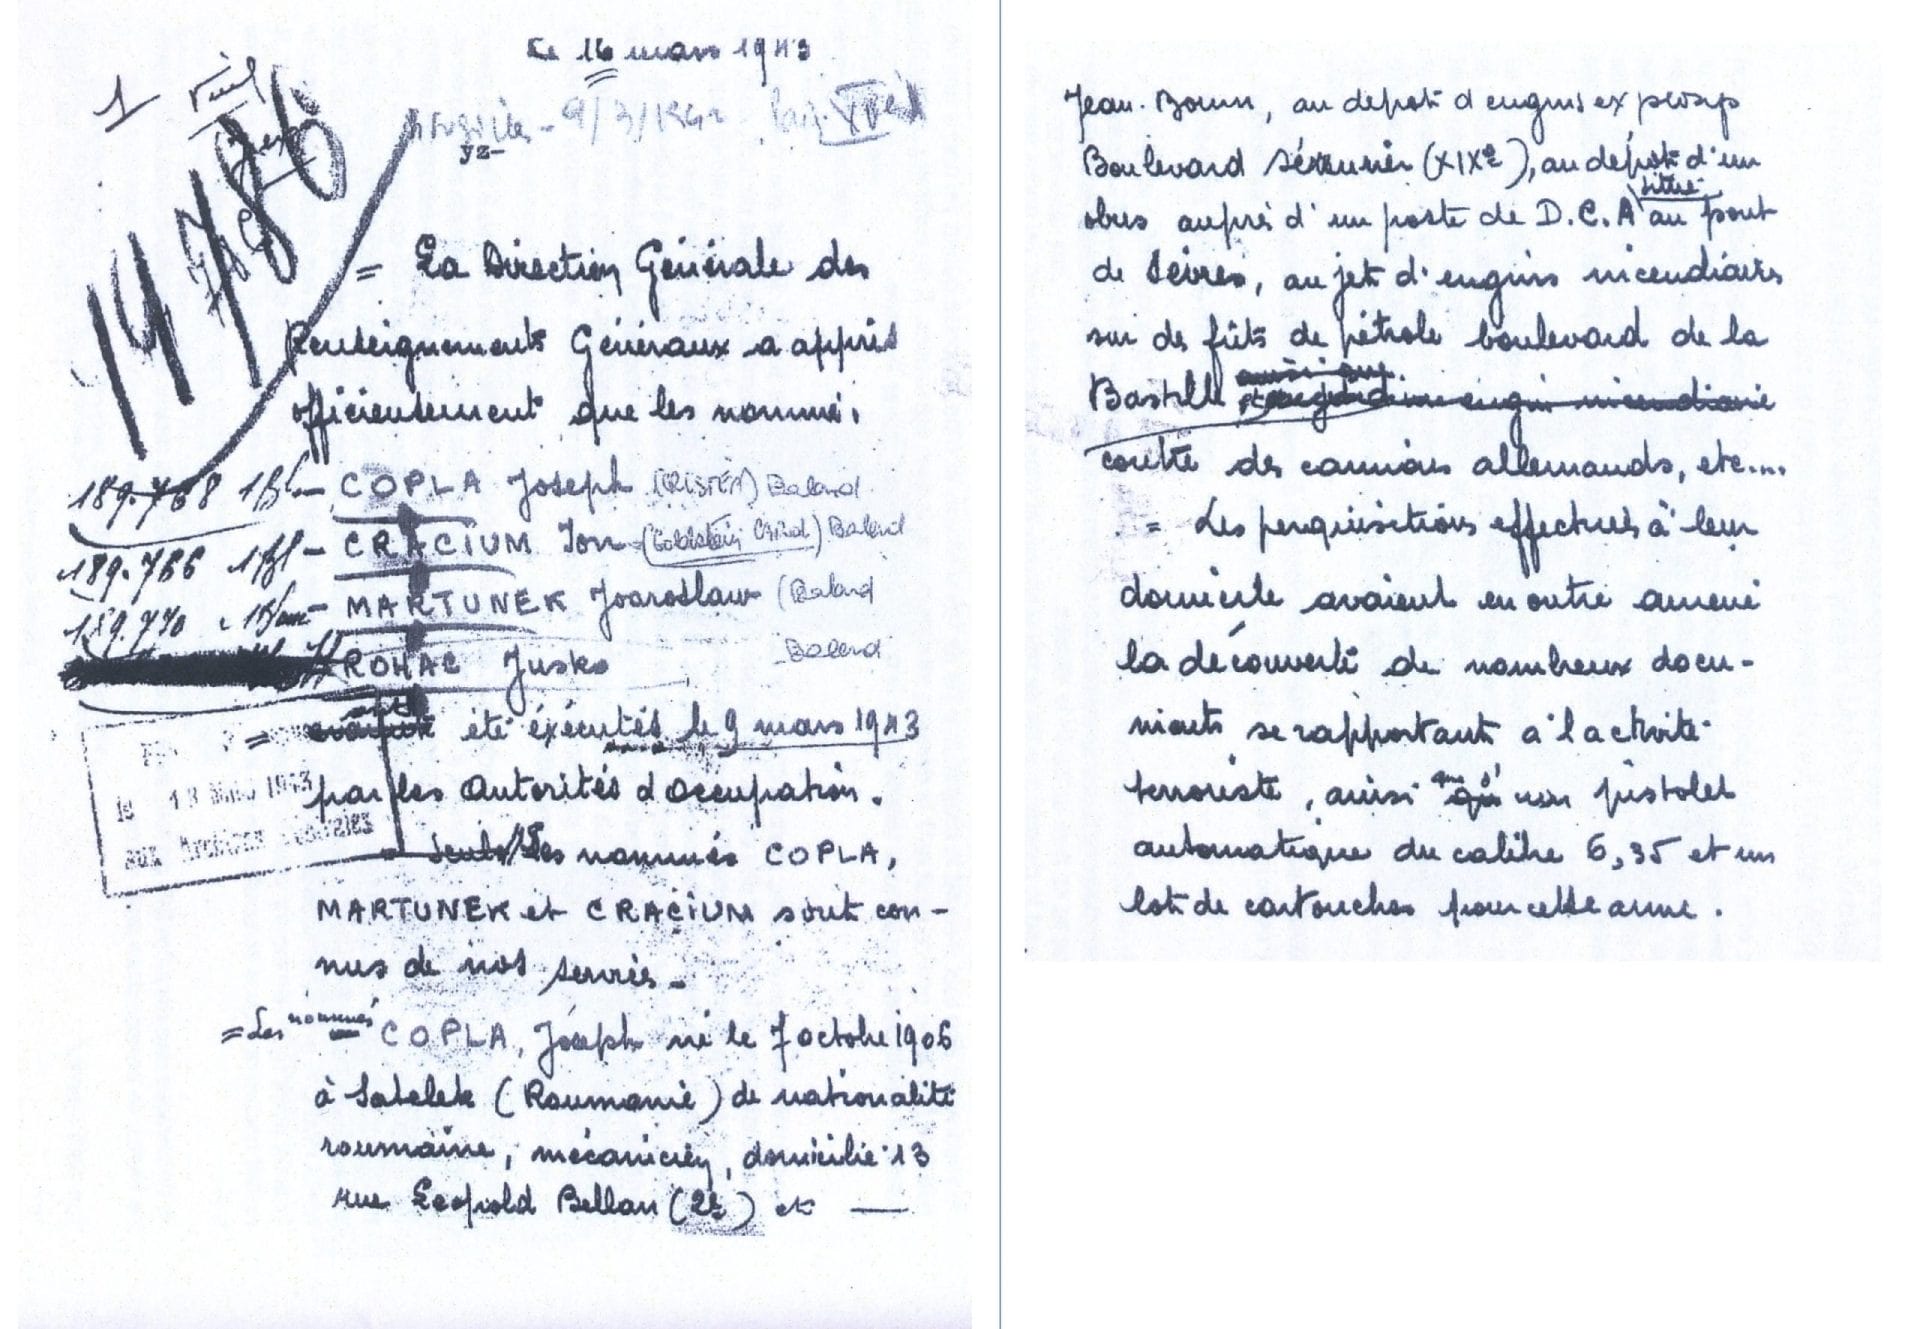 Le 16 mars 1943
1
14786
9/3/194
= La Direction Générale des
Renseignements Généraux a appris
officieusement que les nommés
189.768 COPLA Joseph Balard
189.766 – CRACIUM Ion (Goldstein) Balard
189.770 – MARTUNEK Joaroslaw (Balard
ROHAC Jusko Balard
= ont été éxécutés le 9 mars 1943
par les Autorités d'Occupation.
le 18 MARS 1943
aux
Seuls les nommés COPLA,
MARTUNEK et CRACIUM sont con-
nus de nos services.
= Les nommés COPLA, Joseph né le 7 octobre 1906
à Satelek (Roumanie) de nationalité
roumaine, mécanicien, domicilié 13
rue Léopold Bellan (2e) et —
Jean. , au depot d'engins explosifs
Boulevard Sérurier (XIXe), au dépôt d'un
obus auprès d'un poste de D.C.A situé au pont
de Sèvres, au jet d'engins incendiaires
sur des fûts de pétrole boulevard de la
Bastille ainsi que et jet d'un engin incendiaire
contre des camions allemands, etc....
= Les perquisitions effectuées à leur
domicile avaient en outre amené
la découverte de nombreux docu-
ments se rapportant à l'activité
terroriste, ainsi qu'un pistolet
automatique du calibre 6,35 et un
lot de cartouches pour cette arme.